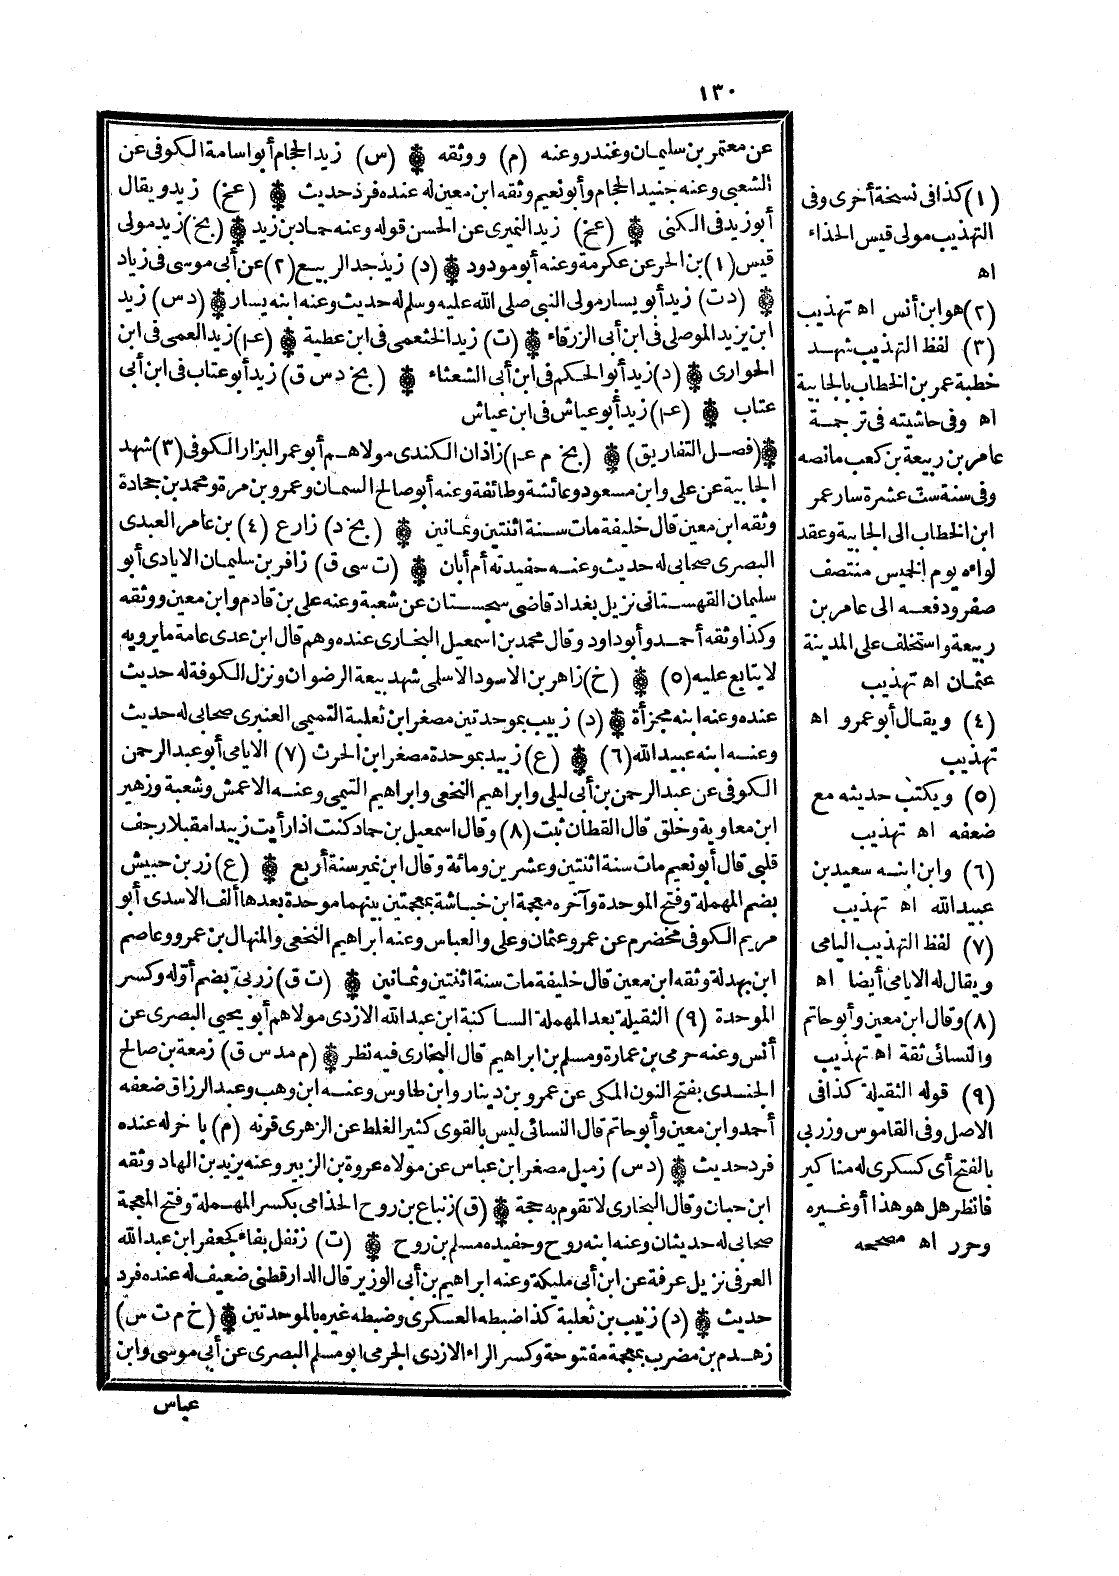 ١٣٠
عن معتمر بن سليمان وغندر وعنه (م) ووثقه ❁ (س) زيد الحجام أبو اسامة الكوفى عن
الشعبى وعنه جنيد الحجام وأبو نعيم وثقه ابن معين له عنده فرد حديث ❁ (عخ) زيد ويقال
أبو زيد فى الكنى ❁ (عخ) زيد النميرى عن الحسن قوله وعنه حماد بن زيد ❁ (بخ) زيد مولى
قيس (١) بن الحر عن عكرمة وعنه أبو مودود ❁ (د) زيد جد الربيع (٢) عن أبى موسى فى زياد
❁ (د ت) زيد أبو يسار مولى النبى صلى الله عليه وسلم له حديث وعنه ابنه يسار ❁ (د س) زيد
ابن يزيد الموصلى فى ابن أبى الزرقاء ❁ (ت) زيد الخثعمى فى ابن عطية ❁ (عـ) زيد العمى فى ابن
الحوارى ❁ (د) زيد أبو الحكم فى ابن أبى الشعثاء ❁ (بخ د س ق) زيد أبو عتاب فى ابن أبى
عتاب ❁ (عـ) زيد أبو عياش فى ابن عياش
❁ (فصـل التفاريق) ❁ (بخ م عـ) زاذان الكندى مولاهـم أبو عمر البزار الكوفى (٣) شهد
الجابية عن على وابن مسعود وعائشة وطائفة وعنه أبو صالح السمان وعمرو بن مرة ومحمد بن جحادة
وثقه ابن معين قال خليفة مات سنة اثنتين وثمانين ❁ (بخ د) زارع (٤) بن عامر العبدى
البصرى صحابى له حديث وعنـه حفيدته أم أبان ❁ (ت سى ق) زافر بن سليمان الايادى أبو
سليمان القهستانى نزيل بغداد قاضى سجستان عن شعبة وعنه على بن قادم وابن معين ووثقه
وكذا وثقه أحمـد وأبو داود وقال محمد بن اسمعيل البخارى عنده وهم قال ابن عدى عامة ما يرويه
لا يتابع عليه (٥) ❁ (خ) زاهر بن الاسود الاسلمى شهد بيعة الرضوان ونزل الكوفة له حديث
عنده وعنه ابنه مجزأة ❁ (د) زبيب بموحدتين مصغر ابن ثعلبة التميمى العنبرى صحابى له حديث
وعنـه ابنه عبيد الله (٦) ❁ (ع) زبيد بموحدة مصغر ابن الحرث (٧) الايامى أبو عبد الرحمن
الكوفى عن عبد الرحمن بن أبى ليلى وابراهيم النخعى وابراهيم التيمى وعنـه الاعمش وشعبة وزهير
ابن معاوية وخلق قال القطان ثبت (٨) وقال اسمعيل بن حماد كنت اذا رأيت زبيدا مقبلا رجف
قلبى قال أبو نعيم مات سنة اثنتين وعشرين ومائة وقال ابن نمير سنة أربع ❁ (ع) زر بن حبيش
بضم المهملة وفتح الموحدة وآخره معجمة ابن خباشة بمعجمتين بينهما موحدة بعدها ألف الاسدى أبو
مريم الكوفى مخضرم عن عمر وعثمان وعلى والعباس وعنه ابراهيم النخعى والمنهال بن عمرو وعاصم
ابن بهدلة وثقه ابن معين قال خليفة مات سنة اثنتين وثمانين ❁ (ت ق) زربى بضم أوّله وكسر
الموحدة (٩) الثقيلة بعد المهملة الساكنة ابن عبد الله الازدى مولاهم أبو يحيى البصرى عن
أنس وعنه حرمى بن عمارة ومسلم بن ابراهيم قال البخارى فيه نظر ❁ (م مد س ق) زمعة بن صالح
الجنـدى بفتح النون المكى عن عمرو بن دينار وابن طاوس وعنـه ابن وهب وعبد الرزاق ضعفه
أحمد وابن معين وأبو حاتم قال النسائى ليس بالقوى كثير الغلط عن الزهرى قرنه (م) بآخر له عنده
فرد حديث ❁ (د س) زميل مصغر ابن عباس عن مولاه عروة بن الزبير وعنه يزيد بن الهاد وثقه
ابن حبان وقال البخارى لا تقوم به حجة ❁ (ق) زنباع بن روح الجذامى بكسر المهـملة وفتح المعجمة
صحابى له حديثان وعنه ابنه روح وحفيده مسلم بن روح ❁ (ت) زنفل بفاء كجعفر ابن عبد الله
العرفى نزيل عرفة عن ابن أبى مليكة وعنه ابراهيم بن أبى الوزير قال الدارقطنى ضعيف له عنده فرد
حديث ❁ (د) زنيب بن ثعلبة كذا ضبطه العسكرى وضبطه غيره بالموحدتين ❁ (خ م ت س)
زهـدم بن مضرب بمعجمة مفتوحة وكسر الراء الازدى الجرمى ابو مسلم البصرى عن أبى موسى وابن
عباس
(١) كذا فى نسخة أخرى وفى
التهذيب مولى قيس الحذاء
اه
(٢) هو ابن أنس اه تهذيب
(٣) لفظ التهذيب شهـد
خطبة عمر بن الخطاب بالجابية
اه وفى حاشيته فى ترجمـة
عامر بن ربيعة بن كعب ما نصه
وفى سنة ست عشرة سار عمر
ابن الخطاب الى الجابية وعقد
لواءه يوم الخميس منتصف
صفر ودفعـه الى عامر بن
ربيعة واستخلف على المدينة
عثمان اه تهذيب
(٤) ويقال أبو عمرو اه
تهذيب
(٥) ويكتب حديثه مع
ضعفه اه تهذيب
(٦) وابن ابنـه سعيد بن
عبيد الله اه تهذيب
(٧) لفظ التهذيب اليامى
ويقال له الايامى أيضا اه
(٨) وقال ابن معين وأبو حاتم
والنسائى ثقة اه تهذيب
(٩) قوله الثقيلة كذا فى
الاصل وفى القاموس وزربى
بالفتح أى كسكرى له مناكير
فانظر هل هو هذا أو غـيره
وحرر اه مصححه